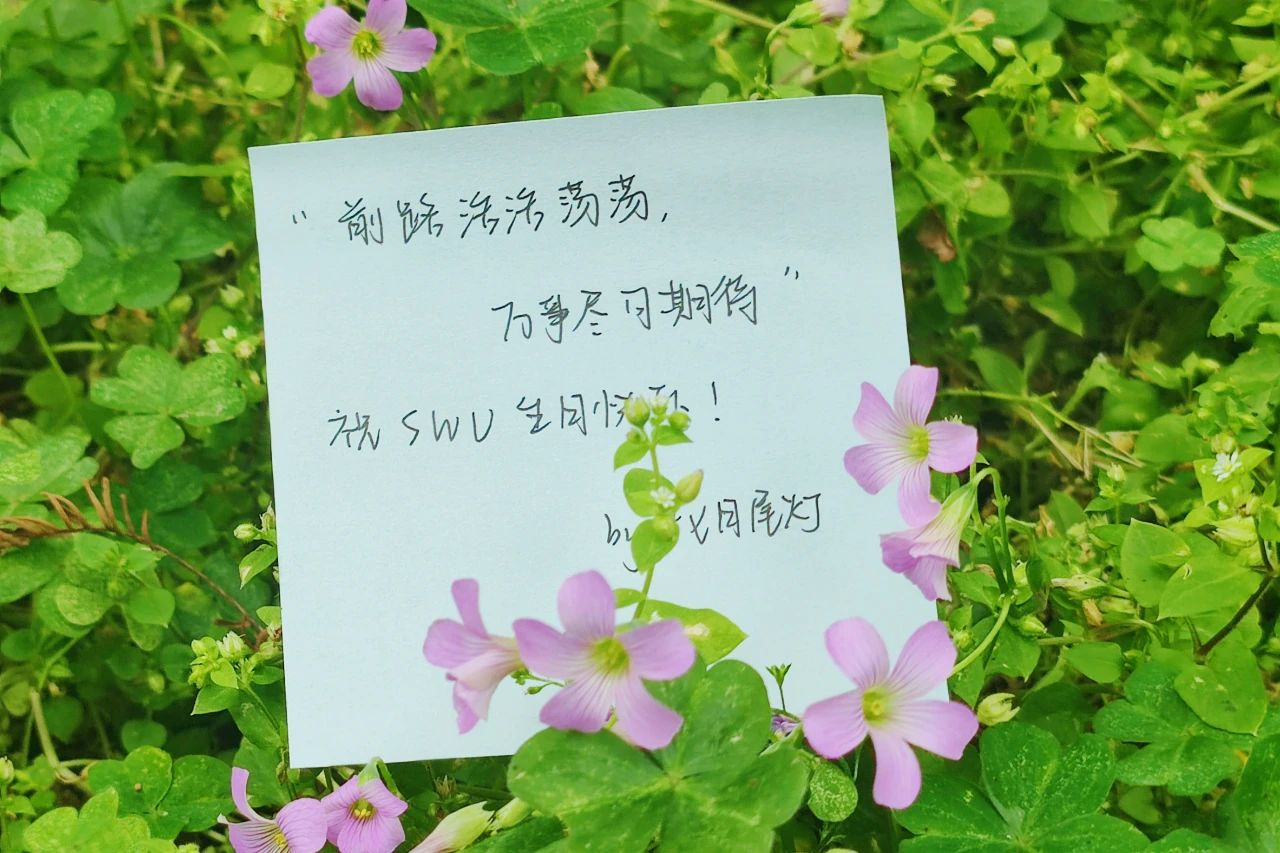 “前路浩浩荡荡,
万事尽可期待”
祝 SWU 生日快乐!
by 尾灯